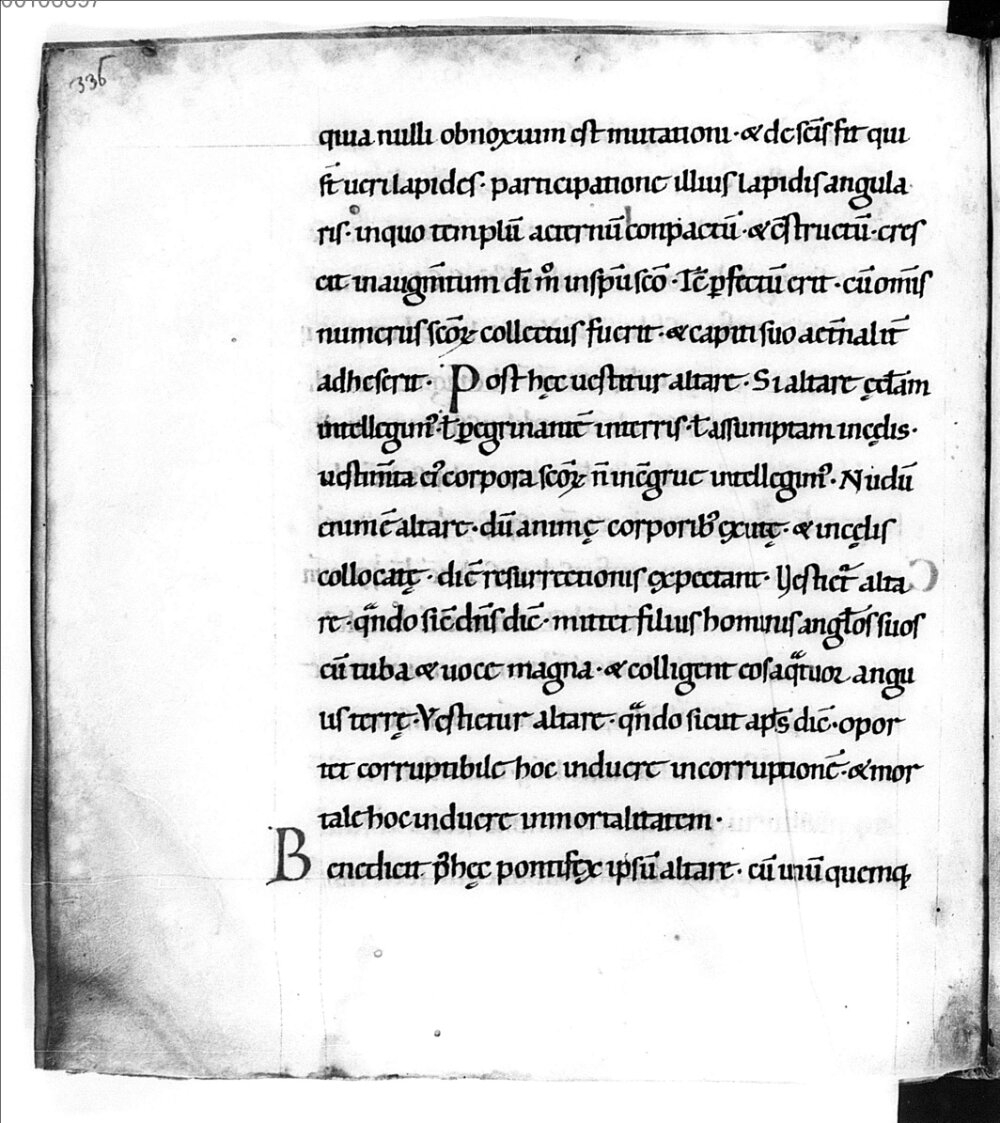 336
quia nulli obnoxium est mutationi · & de sc̄is fit qui
st̄ ueri lapides · participatione illius lapidis angula
ris · in quo templū aeternū conpactū · & c̄structū · cres
cit in augm̄tum dī in sp̄u sc̄o · Tc̄ ꝑfectū erit · cū om̄is
numerus sc̄oꝝ collectus fuerit · & capiti suo aet̄nalit̄
adheserit · Post hęc uestitur altare · Si altare ęccłam
intellegim᷒ · ł ꝑegrinantē in terris · ł assumptam in cęlis ·
uestim̄ta ei᷒ corpora sc̄oꝝ n̄ incōgrue intellegim᷒ · Nudū
enim ē altare · dū animę corporib᷒ exutę · & in cęlis
collocatę · diē resurrectionis expectant · Vestiet᷑ alta
re · qͣndo sic̄ dn̄s dic̄ · mittet filius hominis angłos suos
cū tuba & uoce magna · & colligent eos a qͣttuor angu
lis terrę · Vestietur altare · qͣndo sicut ap̄s dic̄ · opor
tet corruptibile hoc induere incorruptionē · & mor
tale hoc induere inmortalitatem ·
Benedicit p᷒ hęc pontifex ipsū altare · cū unū quemq;